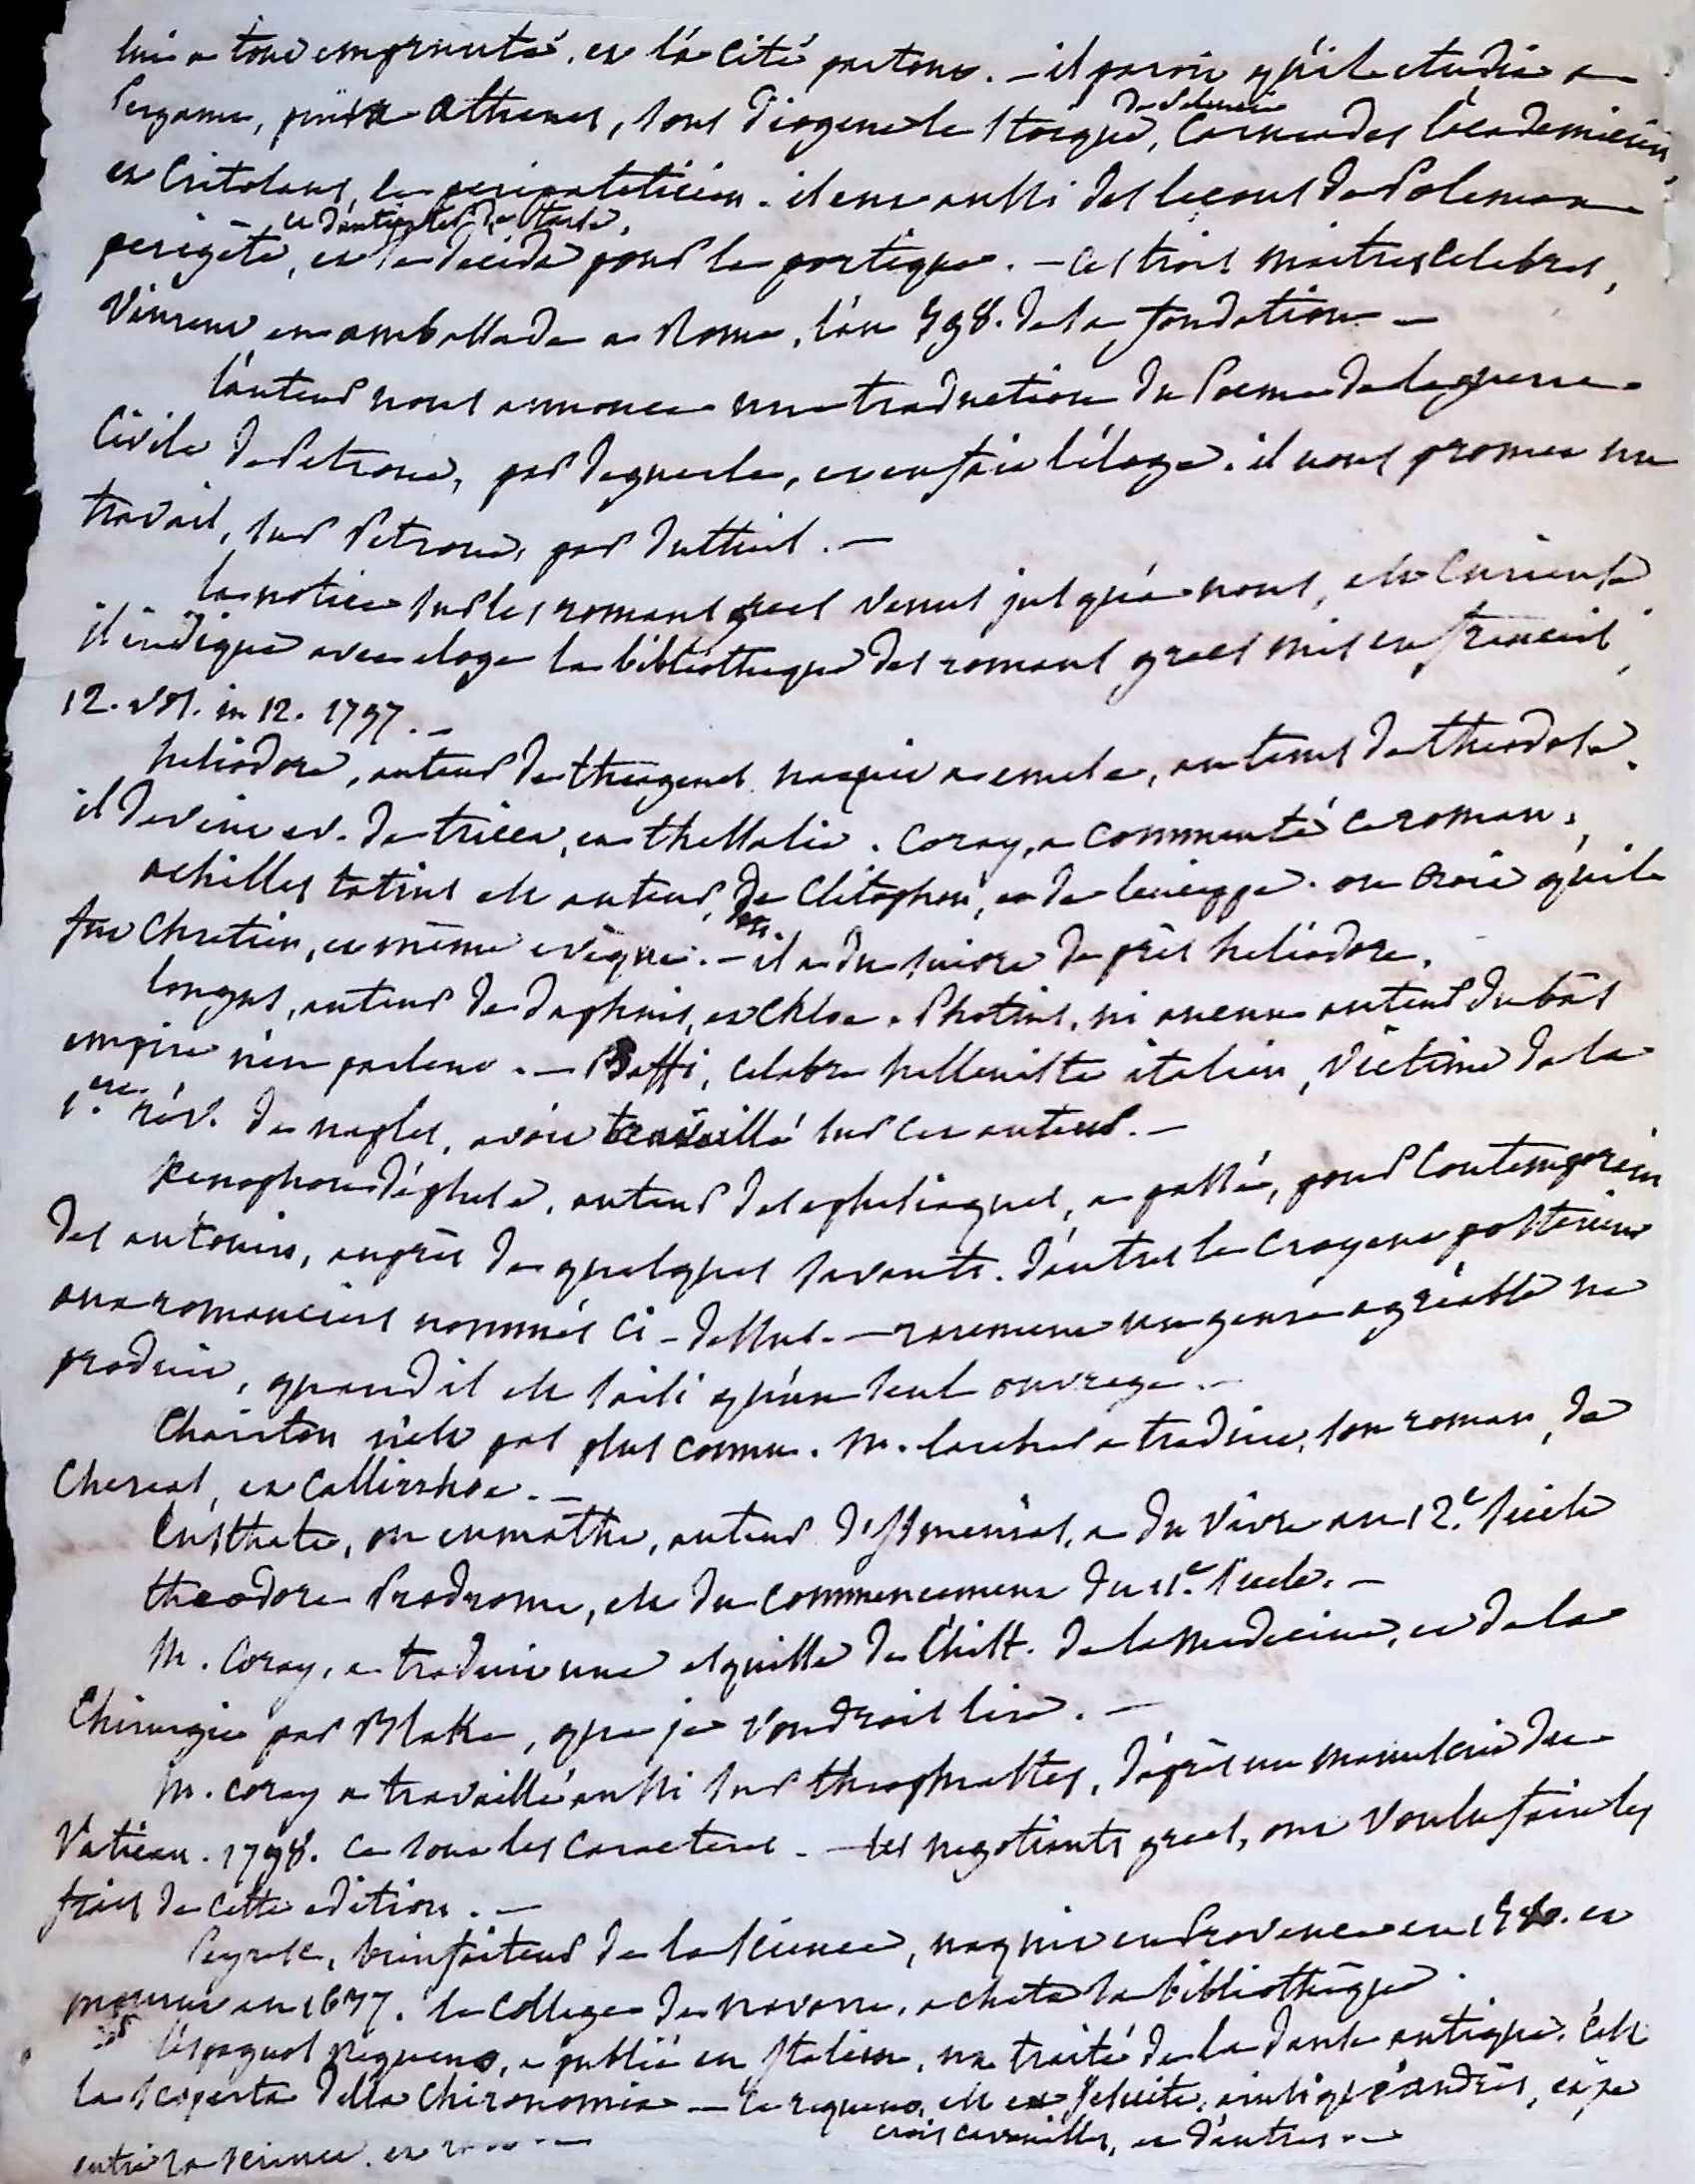 lui a tout emprunté, et l'a cité partout. — il paroit qu'il etudia a
Pergame, puis a Athenes, sous Diogene le Stoique, de Seleucie Carneades l'academicien,
et Critolaus, le peripateticien. il eut aussi des lecons de Polemon
perigete, et d'antipater de Tarse, et se decida pour le portique. — ces trois maitres celebres,
vinrent en ambassade a Rome, l'an 598. de la fondation —
l'auteur nous annonce une traduction du Poeme de la guerre
Civile de Petrone, par deguerle, et en fait l'éloge. il nous promet un
travail, sur Petrone, par dutheil. —
la notice sur les romans grecs venus jusqu'a nous, est curieuse
il indique avec eloge la bibliotheque des romans grecs mis en francais,
12. vol. in 12. 1797. —
heliodore, auteur de theagenes naquit a emese, au tems de theodose.
il devint ev. de tricca, en thessalie. Coray, a commenté ce roman,
achilles tatius est auteur, de Clitophon, et de leucippe. on croit qu'il
fut Chretien, et même evêque. — il a du suivre de près heliodore.
longus, auteur de daphnis, et Chloe. Photius, ni aucun auteur du bas
empire n'en parlent. — Baffi, celebre helleniste italien, victime de la
1.ere rév. de naples, avoit travaillé sur cet auteur. —
Xenophon d'éphese, auteur des ephesiaques, a passé, pour contemporain
des antonins, auprès de quelques savants. d'autres le croyent posterieur
aux romanciers nommés ci-dessus. — rarement un genre agréable ne
produit, quand il est saisi qu'un seul ouvrage. —
Chariton n'est pas plus connu. M. larcher a traduit, son roman, de
Chereas, et Callirrhoe. —
Eusthate, ou eumathe, auteur d'Ismenias, a du vivre au 12.e siecle
theodore Prodrome, est du commencement du 12.e siecle. —
M. Coray, a traduit une esquisse de l'hist. de la medecine, et de la
Chirurgie par Black, que je voudrois lire. —
M. coray a travaillé aussi sur theophrastes, d'après un manuscrit du
Vatican. 1798. ce sont les caracteres. — des negotiants grecs, ont voulu faire les
frais de cette edition. —
Peyresc, bienfaiteur de la science, naquit en Provence en 1580. et
mourut en 1637. le College de navarre, acheta sa bibliothèque.
l'espagnol requeno, a publié en Italien, un traité de la danse antique. C'est
la scoperta della Chironomia — ce requeno, est ex Jesuite, ainsi qu'andrès, et je
crois cavanilles, et d'autres —
entre la science et